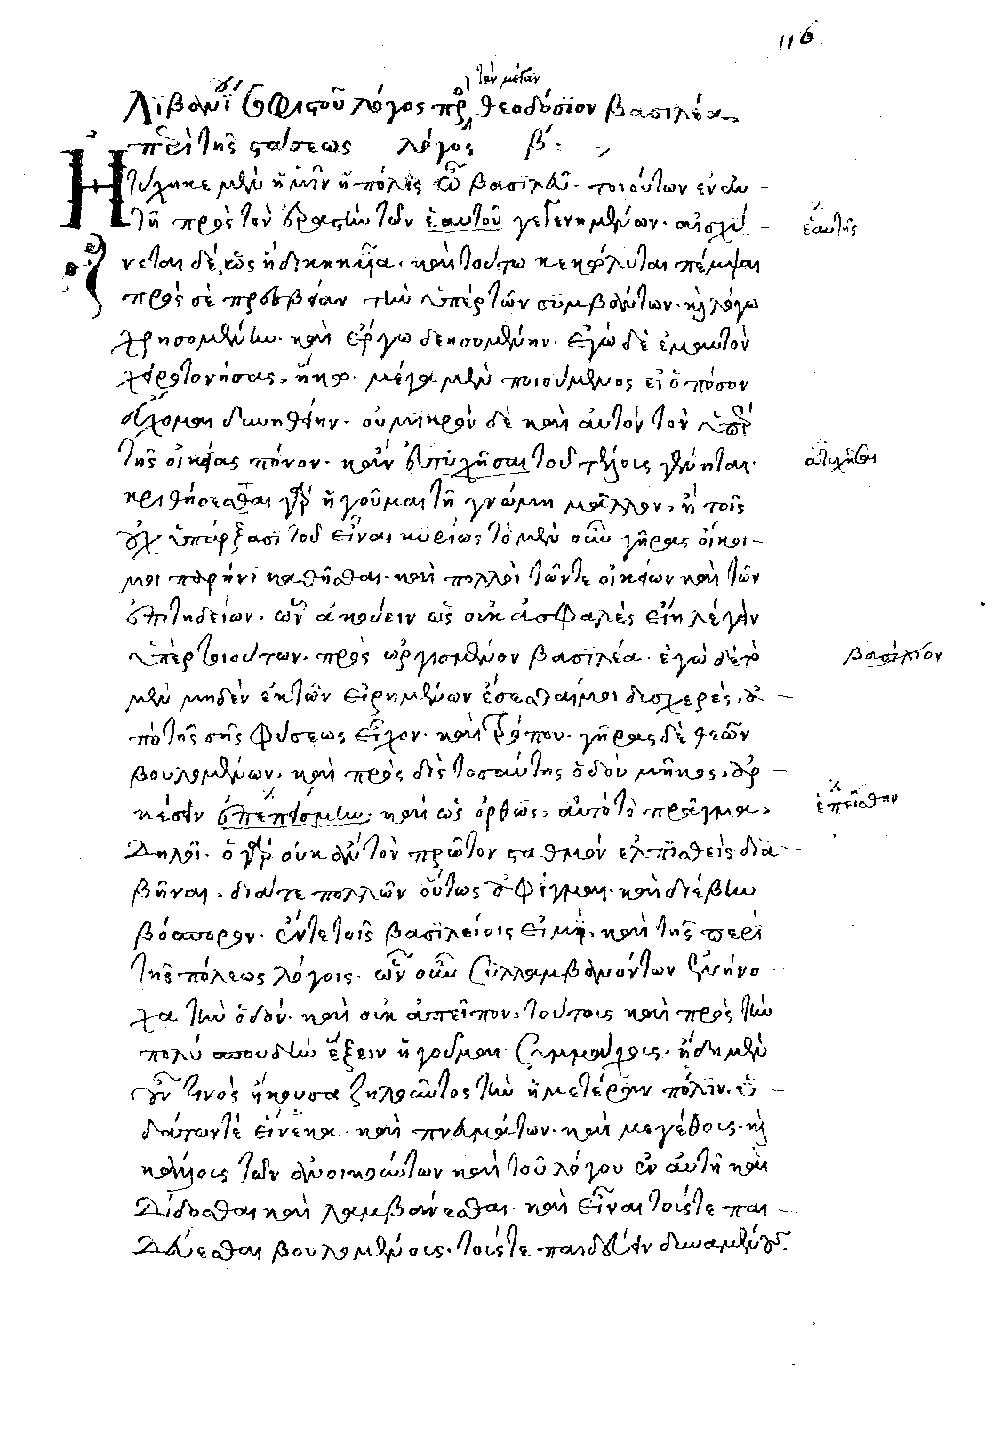 116
τὸν μέγαν
Λιβανίου σοφιστοῦ λόγος πρὸς θεοδόσιον βασιλέα
περὶ τῆς στάσεως λόγος β:
Ητύχηκε μὲν ἡμῖν ἡ πόλις ὦ βασιλεῦ. τοιούτων ἐν αὐ-
τῇ πρὸς τὸν θρασυτῶν ἑαυτοῦ γεγενημένων. αἰσχύ-
ἑαυτῆς
νεται δὲ, ὡς ἠδικηκυῖα. καὶ τούτω κεκώλυται πέμψαι
πρὸς σὲ πρεσβείαν τὴν ὑπὲρ τῶν συμβάντων. καὶ λόγω
χρησομένην. καὶ ἔργω δεησομένην. ἐγὼ δὲ ἐμαυτὸν
χειροτονήσας, ἥκω. μέγα μὲν ποιούμενος εἰ ὁπόσον
εὔχομαι δυνηθείην. οὐ μικρὸν δὲ καὶ αὐτὸν τὸν ὑπὲρ
τῆς οἰκείας πόνον. κἂν ἐπιτυχῆσαι τοῦ τέλους γένηται.
ἀτυχῆσαι
κριθήσεσθαι γὰρ ἡγοῦμαι τῇ γνώμη μᾶλλον, ἢ τοῖς
οὐχ ὑπάρξασι τοῦ εἶναι κυρίως τὸ μὲν οὖν γῆρας οἴκοι-
μοι παρήνει καθῆσθαι. καὶ πολλοὶ τῶν τε οἰκείων καὶ τῶν
ἐπιτηδείων. ὧν ἀκούειν ὡς οὐκ ἀσφαλὲς εἴη λέγειν
ὑπὲρ τοιούτων. πρὸς ὠργισμένον βασιλέα. ἐγὼ δὲ τὸ
βασίλειον
μὲν μηδὲν ἐκ τῶν εἰρημένων ἔσεσθαί μοι δυσχερὲς, ἀ-
πὸ τῆς σῆς φύσεως εἶχον. καὶ τρόπου. γῆρας δὲ θεῶν
βουλομένων. καὶ πρὸς δὶς τοσαύτης ὁδοῦ μῆκος, ἀρ-
κέσειν ἐπεπείσμην, καὶ ὡς ὀρθῶς, αὐτὸ τὸ πρᾶγμα,
ἐπείσθην
δηλοῖ. ὁ γὰρ οὐκ ἂν τὸν πρῶτον σταθμὸν ἐλπισθεὶς δια-
βῆναι. διά τε πολλῶν οὕτως ἀφῖγμαι. καὶ διέβην
βόσπορον. ἔν τε τοῖς βασιλείοις εἰμὶ. καὶ τῆς περὶ
τῆς πόλεως λόγοις. ὧν οὖν συλλαμβανόντων ἐξήνυ-
χα τὴν ὁδόν. καὶ οὐκ ἀπεῖπον. τούτοις καὶ πρὸς τὴν
πολὺ σπουδὴν ἕξειν ἡγοῦμαι συμμάχοις. ἤδη μὲν
οὖν τινὸς ἤκουσα ζηλοῦντος τὴν ἡμετέραν πόλιν. ὑ-
δάτων τε εἵνεκα. καὶ πνευμάτων. καὶ μεγέθους. καὶ
κάλλους τῶν ἐνοικούντων καὶ τοῦ λόγου ἐν αὐτῇ καὶ
δίδοσθαι καὶ λαμβάνεσθαι. καὶ εἶναι τοῖς τε παι-
δεύεσθαι βουλομένοις. τοῖς τε παιδεύειν δυναμένοις.